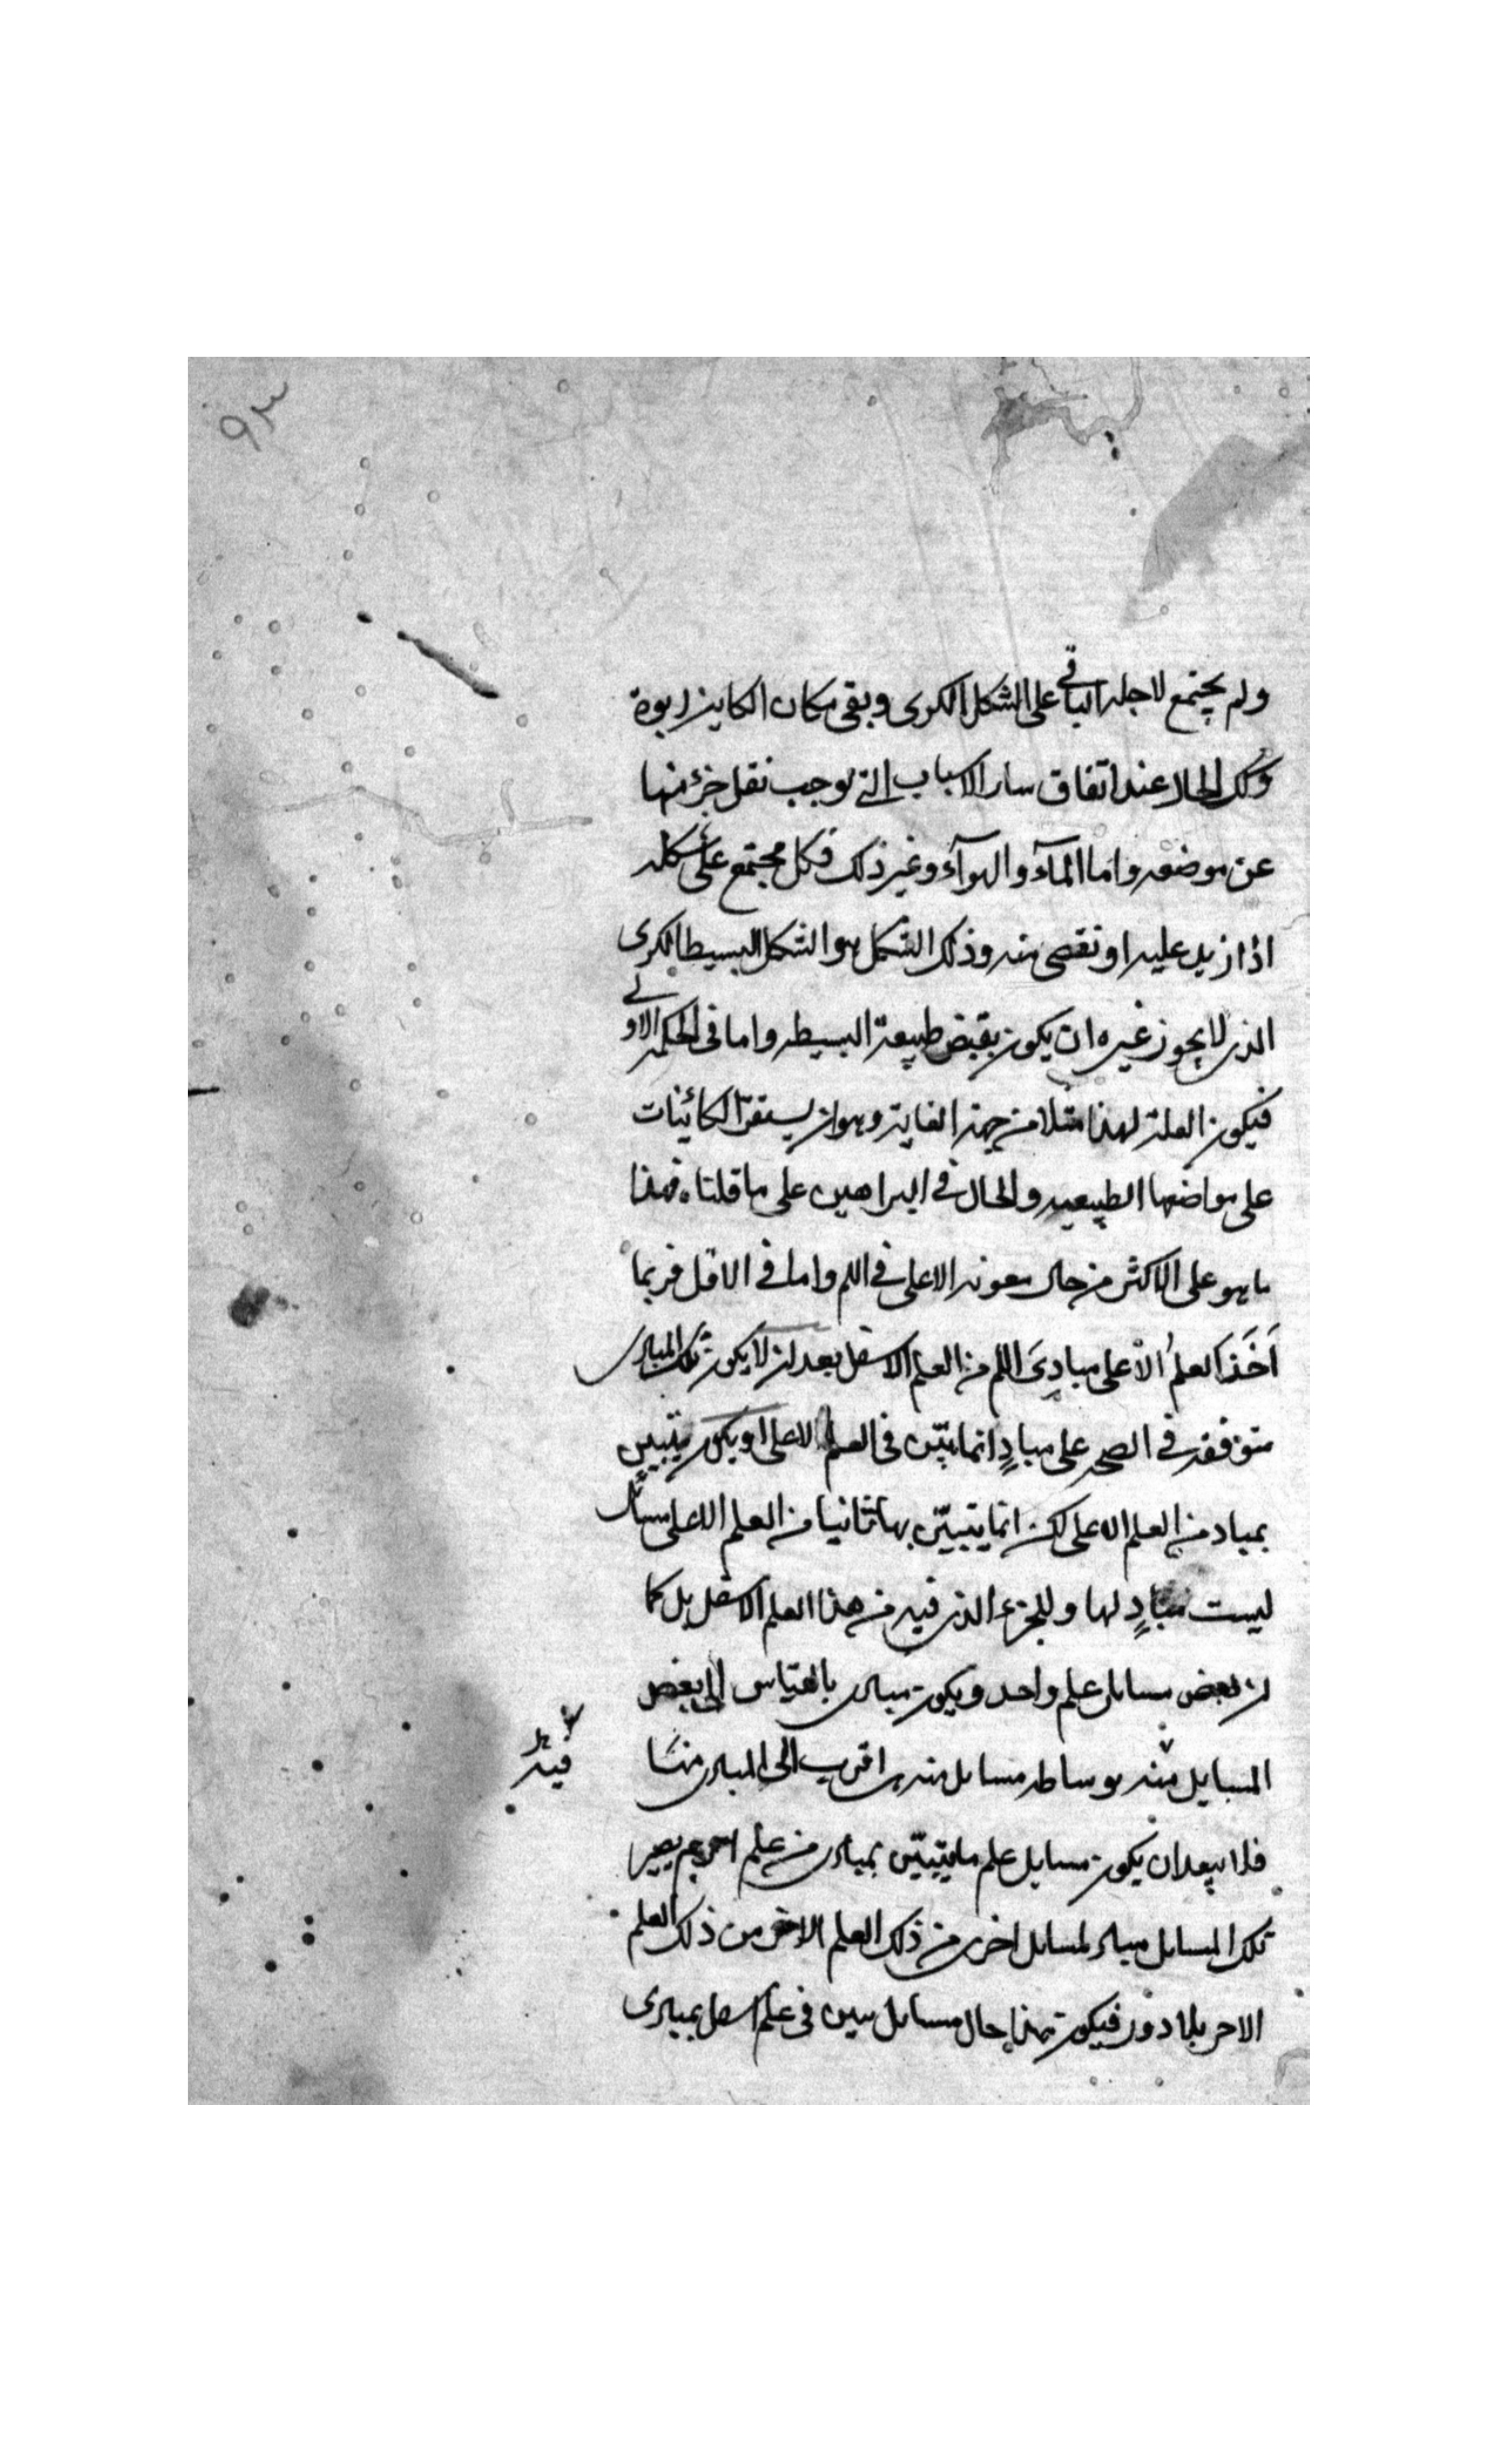 ٩٣
ولم يجتمع لاجله الباقي على الشكل الكرى وبقى مكان الكاين ربوة
وكك الحال عند اتفاق ساير الاسباب التى توجب نقل جزء منها
عن موضعه واما المآء والهوآء وغير ذلك فكل مجتمع على شكله
اذا زيد عليه او نقص منه وذلك الشكل هو الشكل البسيط الكرى
الذى لا يجوز غيره ان يكون بقبض طبيعة البسيطه واما فى الحكمه الاولى
فيكون العلة لهذا مثلا من جهة الغاية وهو ان يستقر الكائنات
على مواضعها الطبيعيه والحال فى البراهين على ما قلناه فهذا
ما هو على الاكثر من حال معونه الاعلى فى اللم واما فى الاقل فربما
اَخَذَ العلمُ الاعلى مبادِىَ اللم من العلم الاسفل بعد ان لا يكون تلك المبادى
متوقفه فى الصحه على مبادٍ انما يبيّن فى العلم الاعلى او يكون يتبيين
بمباد من العلم الاعلى لكن انما يتبيّن بها ثانيا من العلم الاعلى مسائل
ليست مبادٍ لها وللجزء الذى فيه من هذا العلم الاسفل بل كما
ان بعض مسايل علم واحد ويكون مبادى بالقياس الى بعض
المسايل منه بوساطه مسايل منه هى اقرب الى المبادى منها
فيه
فلا يبعد ان يكون مسايل علم ما يتبيّن بمبادى من علم اخر ثم يصير
تلك المسايل مبادى لمسايل اخرى من ذلك العلم الاخر من ذلك العلم
الاخر بلا دور فيكون هذا حال مسايل تبين فى علم اسفل بمبادى